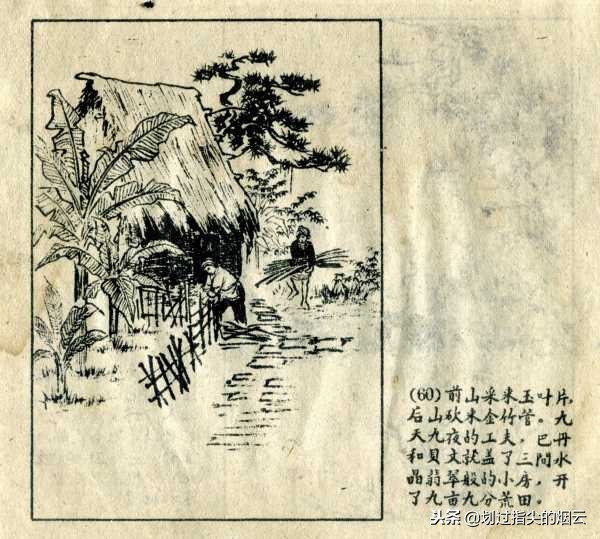 (60)前山采来玉叶片，
后山砍来金竹管。九
天九夜的工夫，巴丹
和贝文就盖了三间水
晶翡翠般的小房，开
了九亩九分荒田。
头条 @划过指尖的烟云